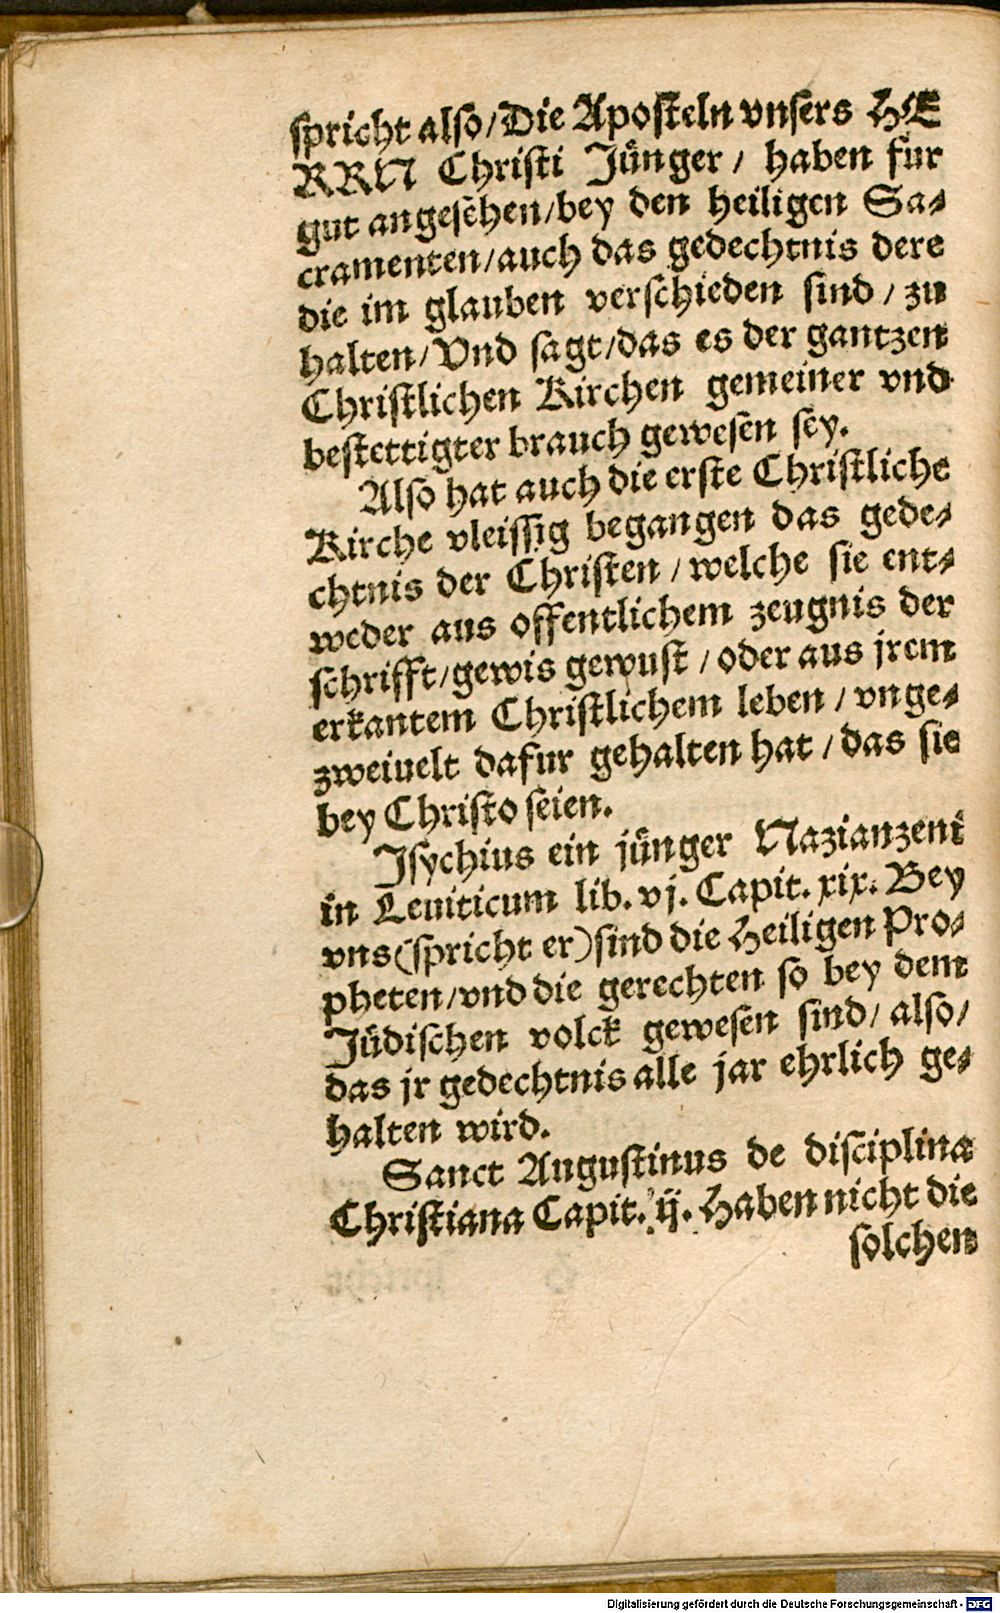 spricht also/Die Aposteln vnsers HE
RRN Christi Jünger/ haben fur
gut angesehen/bey den heiligen Sa-
cramenten/auch das gedechtnis dere
die im glauben verschieden sind/ zu
halten/Vnd sagt/das es der gantzen
Christlichen Kirchen gemeiner vnd
bestettigter brauch gewesen sey.
Also hat auch die erste Christliche
Kirche vleissig begangen das gede-
chtnis der Christen/welche sie ent-
weder aus offentlichem zeugnis der
schrifft/gewis gewust/oder aus jrem
erkantem Christlichem leben/vnge-
zweiuelt dafur gehalten hat/das sie
bey Christo seien.
Isychius ein jünger Nazianzeni
in Leuiticum lib. vj. Capit. xix. Bey
vns(spricht er)sind die Heiligen Pro-
pheten/vnd die gerechten so bey dem
Jüdischen volck gewesen sind/also/
das jr gedechtnis alle jar ehrlich ge-
halten wird.
Sanct Augustinus de disciplina
Christiana Capit. ij. Haben nicht die
solchen
Digitalisierung gefördert durch die Deutsche Forschungsgemeinschaft - DFG